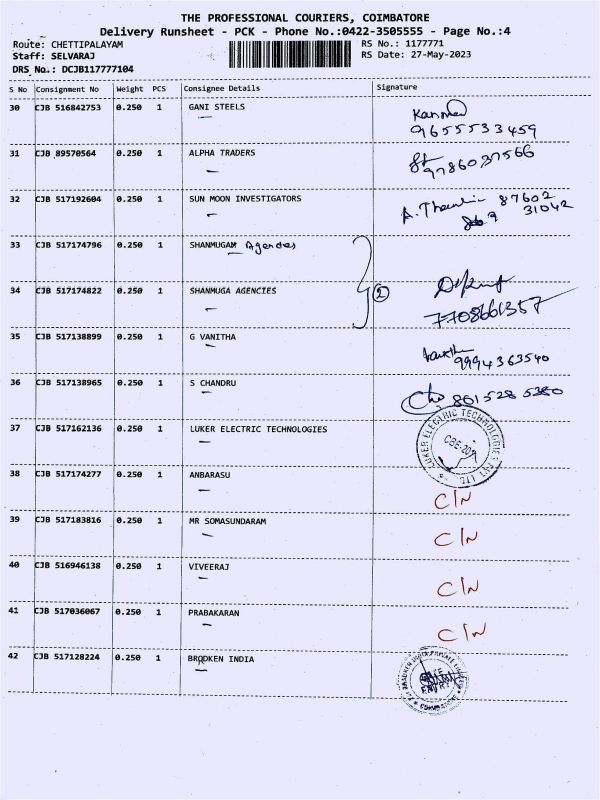 THE PROFESSIONAL COURIERS, COIMBATORE
Delivery Runsheet - PCK - Phone No.:0422-3505555 - Page No.:4
Route: CHETTIPALAYAM RS No.: 1177771
Staff: SELVARAJ RS Date: 27-May-2023
DRS No.: DCJB117777104
S No Consignment No Weight PCS Consignee Details Signature
30 CJB 516842753 0.250 1 GANI STEELS
9655533459
31 CJB 89570564 0.250 1 ALPHA TRADERS
9786037566
32 CJB 517192604 0.250 1 SUN MOON INVESTIGATORS 87602
31042
33 CJB 517174796 0.250 1 SHANMUGAM Agencies
2
34 CJB 517174822 0.250 1 SHANMUGA AGENCIES
7708661357
35 CJB 517138899 0.250 1 G VANITHA
9994363540
36 CJB 517138965 0.250 1 S CHANDRU
861528 5380
37 CJB 517162136 0.250 1 LUKER ELECTRIC TECHNOLOGIES
LUKER ELECTRIC TECHNOLOGIES PVT LTD
38 CJB 517174277 0.250 1 ANBARASU
C/N
39 CJB 517183816 0.250 1 MR SOMASUNDARAM
C/N
40 CJB 516946138 0.250 1 VIVEERAJ
C/N
41 CJB 517036067 0.250 1 PRABAKARAN
C/N
42 CJB 517128224 0.250 1 BROOKEN INDIA
COIMBATORE